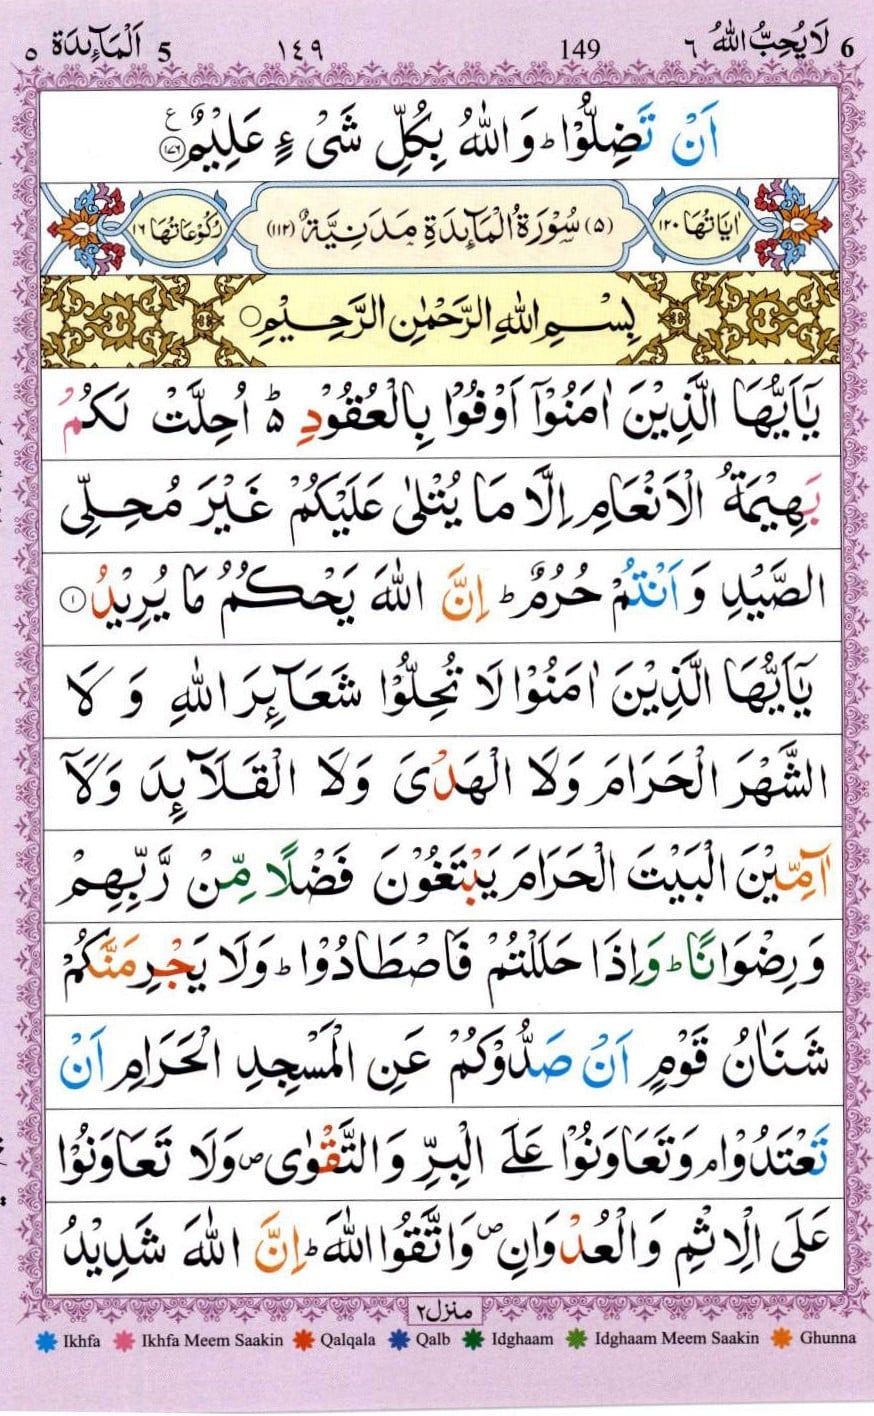 لَا يُحِبُّ اللّٰهُ ٦ 6 149 ١٤٩ اَلْمَآئِدَة 5 ٥
اَنْ تَضِلُّوْا ؕ وَاللّٰهُ بِكُلِّ شَیْءٍ عَلِيْمٌ ﴿١٧٦﴾ ع
اٰيَاتُهَا ١٢٠ (٥) سُوْرَةُ الْمَآئِدَةِ مَدَنِيَّةٌ (١١٢) رُكُوْعَاتُهَا ١٦
بِسْمِ اللّٰهِ الرَّحْمٰنِ الرَّحِيْمِ
يٰۤاَيُّهَا الَّذِيْنَ اٰمَنُوْۤا اَوْفُوْا بِالْعُقُوْدِ ؕ اُحِلَّتْ لَكُمْ
بَهِيْمَةُ الْاَنْعَامِ اِلَّا مَا يُتْلٰى عَلَيْكُمْ غَيْرَ مُحِلِّى
الصَّيْدِ وَ اَنْتُمْ حُرُمٌ ؕ اِنَّ اللّٰهَ يَحْكُمُ مَا يُرِيْدُ ﴿١﴾
يٰۤاَيُّهَا الَّذِيْنَ اٰمَنُوْا لَا تُحِلُّوْا شَعَآئِرَ اللّٰهِ وَ لَا
الشَّهْرَ الْحَرَامَ وَلَا الْهَدْىَ وَلَا الْقَلَآئِدَ وَلَاۤ
آٰمِّيْنَ الْبَيْتَ الْحَرَامَ يَبْتَغُوْنَ فَضْلًا مِّنْ رَّبِّهِمْ
وَرِضْوَانًا ؕ وَاِذَا حَلَلْتُمْ فَاصْطَادُوْا ؕ وَلَا يَجْرِمَنَّكُمْ
شَنَاٰنُ قَوْمٍ اَنْ صَدُّوْكُمْ عَنِ الْمَسْجِدِ الْحَرَامِ اَنْ
تَعْتَدُوْا ۘ وَتَعَاوَنُوْا عَلَى الْبِرِّ وَالتَّقْوٰى ۪ وَلَا تَعَاوَنُوْا
عَلَى الْاِثْمِ وَالْعُدْوَانِ ۪ وَاتَّقُوا اللّٰهَ ؕ اِنَّ اللّٰهَ شَدِيْدُ
منزل ٢
Ikhfa Ikhfa Meem Saakin Qalqala Qalb Idghaam Idghaam Meem Saakin Ghunna